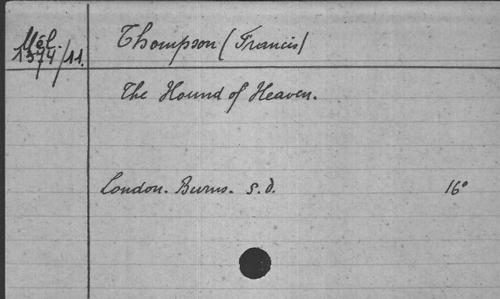 Mél.
1374/11.
Thompson (Francis)
The Hound of Heaven.
London. Burns. s.d. 16°